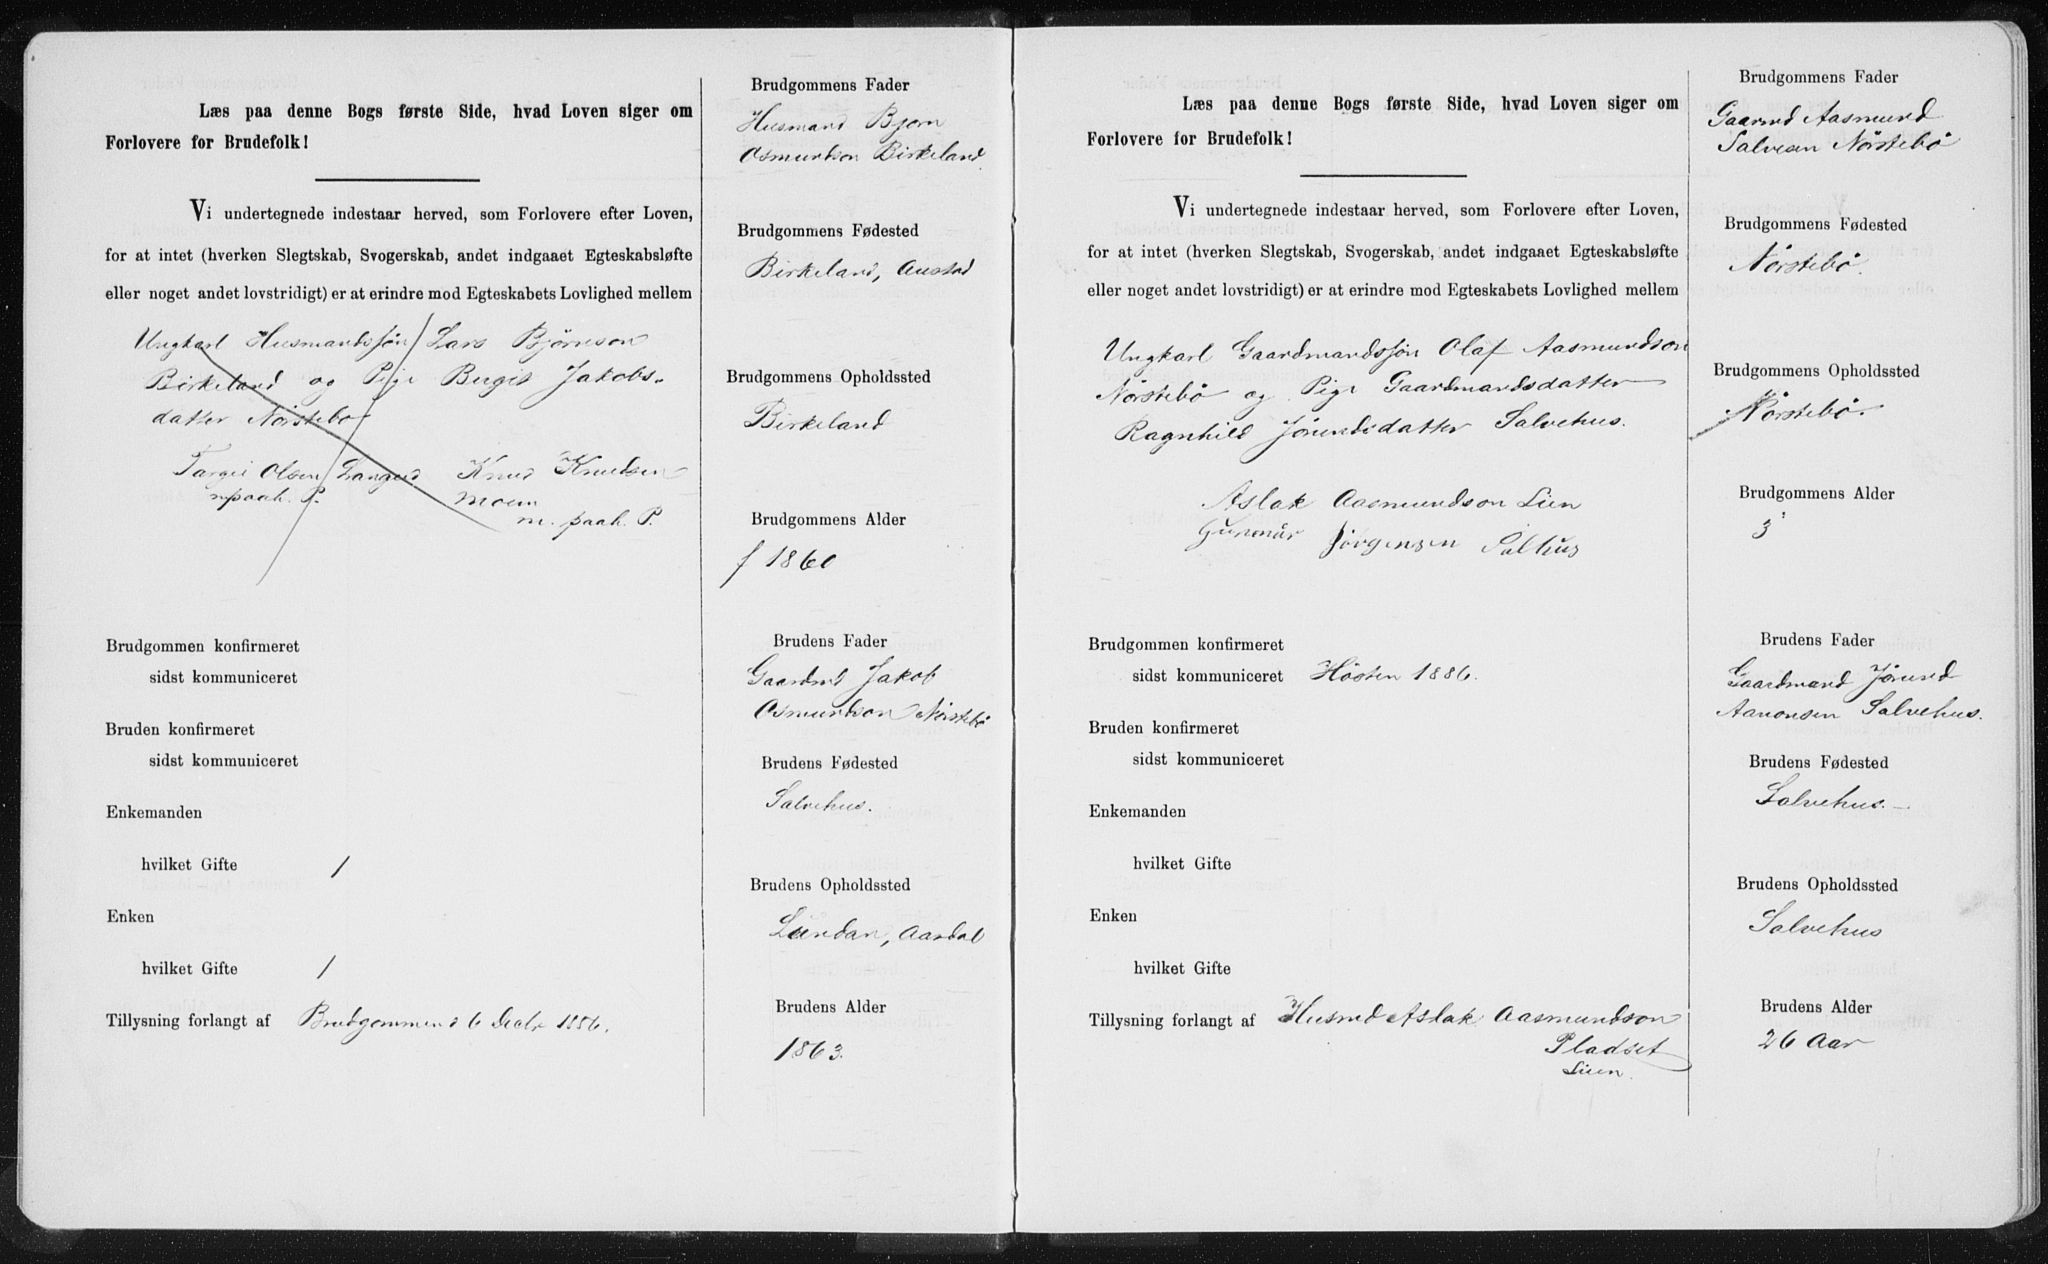 Læs paa denne Bogs første Side, hvad Loven siger om
Forlovere for Brudefolk!
Vi undertegnede indestaar herved, som Forlovere efter Loven,
for at intet (hverken Slegtskab, Svogerskab, andet indgaaet Egteskabsløfte
eller noget andet lovstridigt) er at erindre mod Egteskabets Lovlighed mellem
Ungkarl Husmandssøn Lars Bjørnson
Birkeland og Pige Birgit Jakobs-
datter Nørstebø
Targei Olsen Langeid Knud Knudsen
mpaah. P. Moen
m. paah. P.
Brudgommen konfirmeret
sidst kommuniceret
Bruden konfirmeret
sidst kommuniceret
Enkemanden
hvilket Gifte 1
Enken
hvilket Gifte 1
Tillysning forlangt af Brudgommen d 6 Decbr 1886.
Brudgommens Fader
Husmand Bjørn
Osmundson Birkeland
Brudgommens Fødested
Birkeland, Austad
Brudgommens Opholdssted
Birkeland
Brudgommens Alder
f 1860
Brudens Fader
Gaardmd Jakob
Osmundson Nørstebø
Brudens Fødested
Salvehus.
Brudens Opholdssted
Lundan, Aardal
Brudens Alder
1863.
Læs paa denne Bogs første Side, hvad Loven siger om
Forlovere for Brudefolk!
Vi undertegnede indestaar herved, som Forlovere efter Loven,
for at intet (hverken Slegtskab, Svogerskab, andet indgaaet Egteskabsløfte
eller noget andet lovstridigt) er at erindre mod Egteskabets Lovlighed mellem
Ungkarl Gaardmandssøn Olaf Aasmundson
Nørstebø og Pige Gaardmandsdatter
Ragnhild Jørundsdatter Salvehus.
Aslak Aasmundson Lien
Gunnar Jørgensen Salhus
Brudgommen konfirmeret
sidst kommuniceret Høsten 1886.
Bruden konfirmeret
sidst kommuniceret
Enkemanden
hvilket Gifte
Enken
hvilket Gifte
Tillysning forlangt af Husmd Aslak Aasmundson
Pladset
Lien.
Brudgommens Fader
Gaarmd Aasmund
Salvesen Nørstebø
Brudgommens Fødested
Nørstebø.
Brudgommens Opholdssted
Nørstebø.
Brudgommens Alder
3
Brudens Fader
Gaardmand Jørund
Aanonsen Salvehus.
Brudens Fødested
Salvehus.
Brudens Opholdssted
Salvehus
Brudens Alder
26 Aar